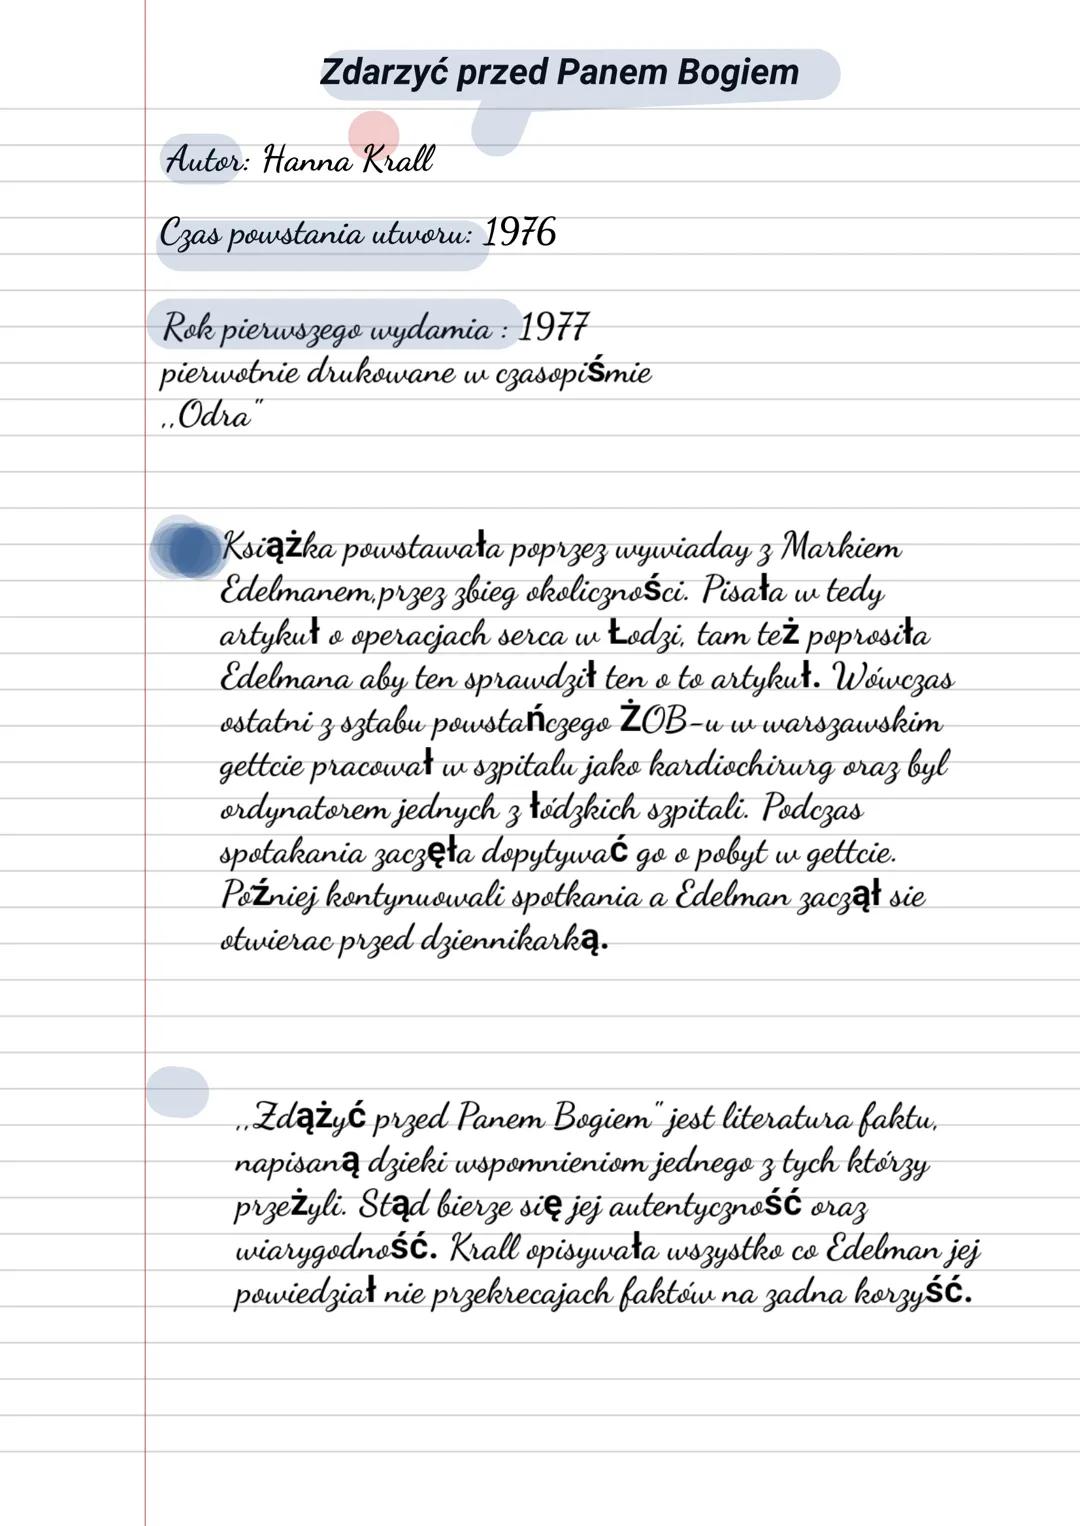 Zdarzyć przed Panem Bogiem
Autor: Hanna Krall
Czas powstania utworu: 1976
Rok pierwszego wydamia : 1977
pierwotnie drukowane w czasopiśmie
,,Odra"
Książka powstawała poprzez wywiaday z Markiem
Edelmanem,przez zbieg okoliczności. Pisała w tedy
artykuł o operacjach serca w Łodzi, tam też poprosiła
Edelmana aby ten sprawdził ten o to artykuł. Wówczas
ostatni z sztabu powstańczego ŻOB-u w warszawskim
gettcie pracował w szpitalu jako kardiochirurg oraz byl
ordynatorem jednych z łódzkich szpitali. Podczas
spotakania zaczęła dopytywać go o pobyt w gettcie.
Później kontynuowali spotkania a Edelman zaczął sie
otwierac przed dziennikarką.
,,Zdążyć przed Panem Bogiem" jest literatura faktu,
napisaną dzieki wspomnieniom jednego z tych którzy
przeżyli. Stąd bierze się jej autentyczność oraz
wiarygodność. Krall opisywała wszystko co Edelman jej
powiedział nie przekrecajach faktów na zadna korzyść.